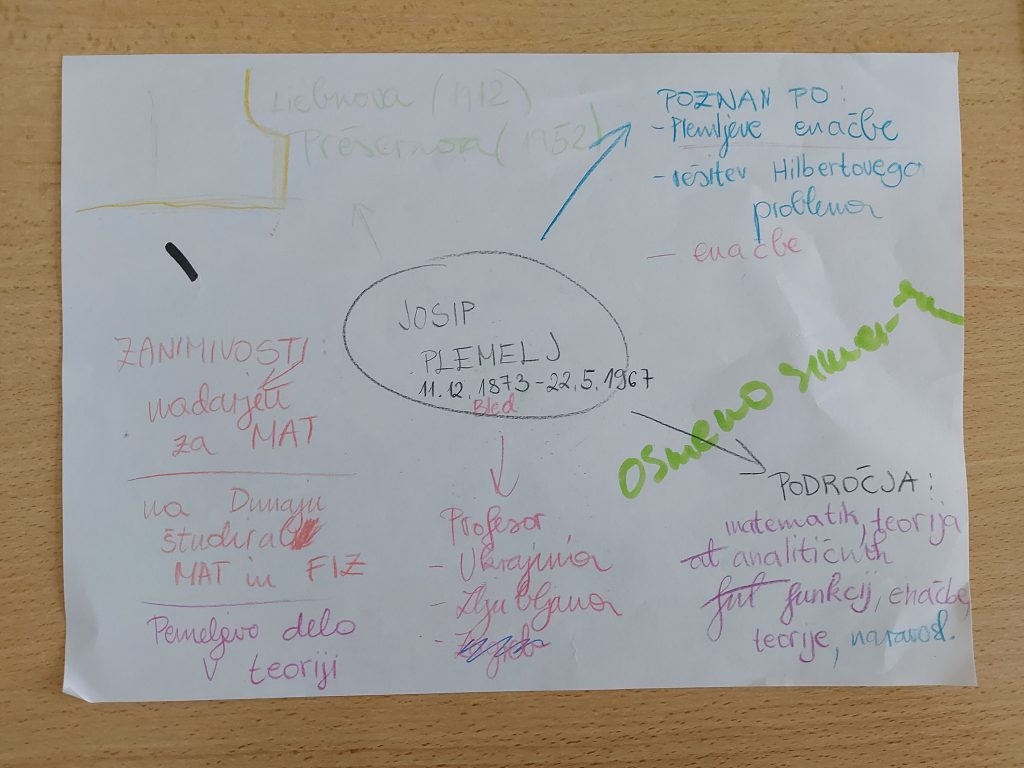 Liebnova (1912)
Prešernova (1952)
POZNAN PO:
- Plemljeve enačbe
- rešitev Hilbertovega
problema
- enačbe
JOSIP
PLEMELJ
11.12.1873-22.5.1967
Bled
OSMERO
ZANIMIVOSTI:
nadarjen
za MAT
na Dunaju
študiral
MAT in FIZ
Pemeljevo delo
v teoriji
Profesor
- Ukrajina
- Ljubljana
PODROČJA:
matematik, teorija
analitičnih
funkcij, enačbe,
teorije, naravosl.